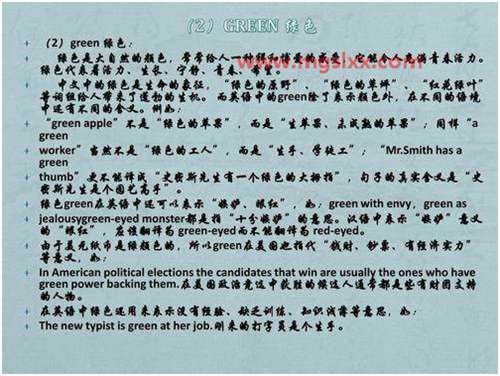 (2) GREEN 绿色
(2) green 绿色:
绿色是大自然的颜色,常常给人一种 青春活力。
绿色代表着活力、生长、宁静、青春、希望。
中文中的绿色是生命的象征,“绿色的原野”、“绿色的草坪”、“红花绿叶”
等词组给人带来了蓬勃的生机。而英语中的green除了表示颜色外,在不同的语境
中还有不同的含义。例如:
“green apple”不是“绿色的苹果”,而是“生苹果、未成熟的苹果”;同样“a
green
worker”当然不是“绿色的工人”,而是“生手、学徒工”;“Mr.Smith has a
green
thumb”更不能译成“史密斯先生有一个绿色的大拇指”,句子的真实含义是“史
密斯先生是个园艺高手”。
绿色green在英语中还可以表示“嫉妒、眼红”,如:green with envy, green as
jealousygreen-eyed monster都是指“十分嫉妒”的意思。汉语中表示“嫉妒”意义
的“眼红”,应该翻译为green-eyed而不能翻译为red-eyed。
由于美元纸币是绿颜色的,所以green在美国也指代“钱财、钞票、有经济实力”
等意义,如:
In American political elections the candidates that win are usually the ones who have
green power backing them.在美国政治竞选中获胜的候选人通常都是些有财团支持
的人物。
在英语中绿色还用来表示没有经验、缺乏训练、知识浅薄等意思,如:
The new typist is green at her job.刚来的打字员是个生手。
www.mgslxx.com